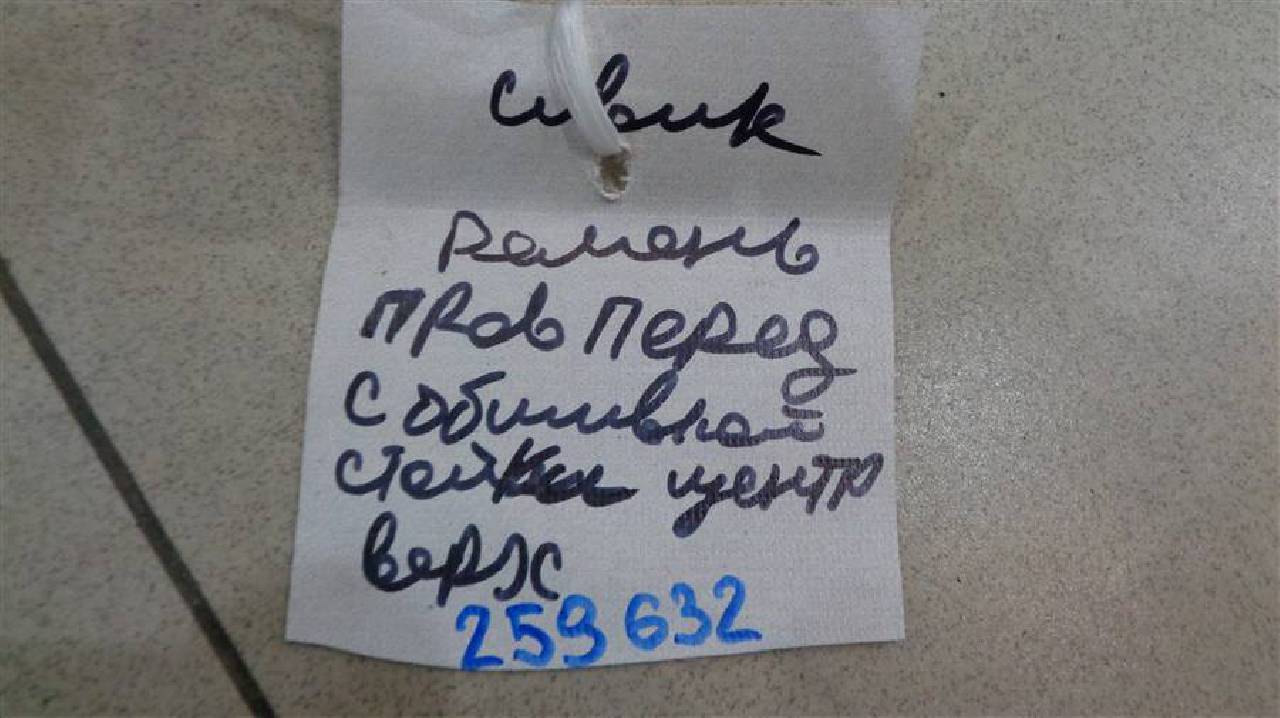 Сивик
Ремень
прав перед
с обшивкой
стойки центр
верх
259632